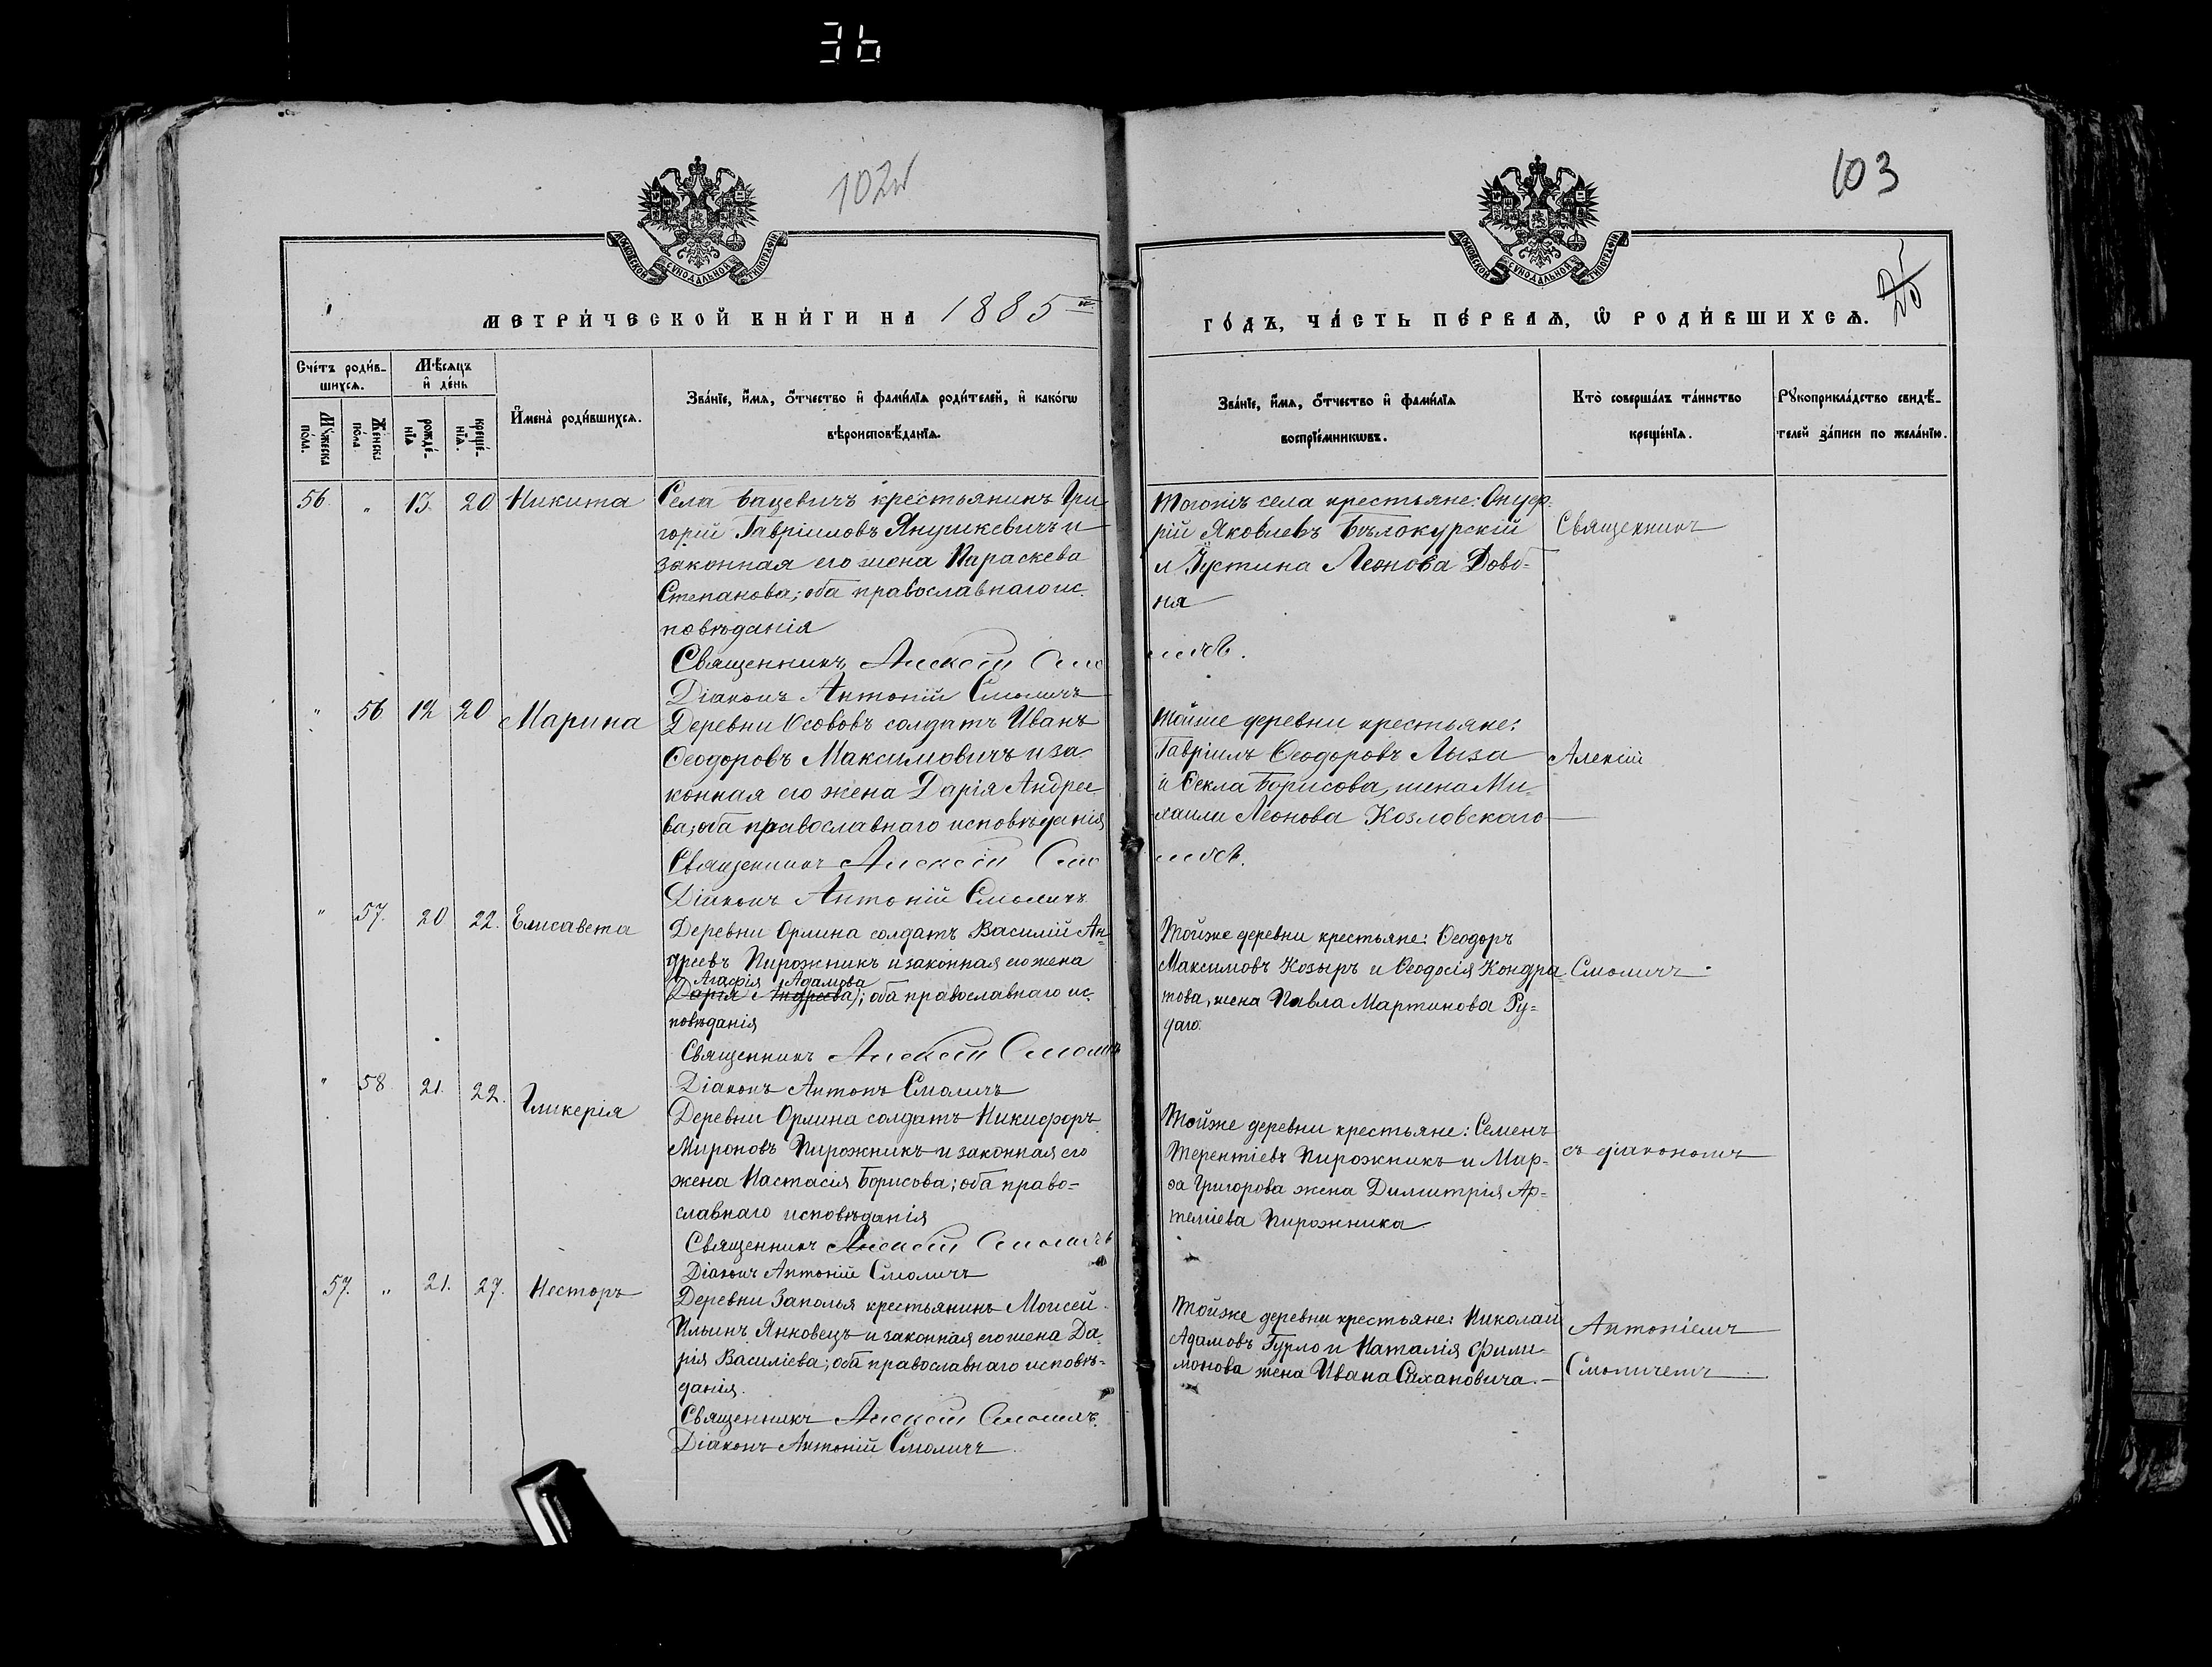 36
102
103
МОСКОВСКОЙ СѴНОДАЛЬНОЙ ТИПОГРАФІИ
МОСКОВСКОЙ СѴНОДАЛЬНОЙ ТИПОГРАФІИ
25
МЕТРИ́ЧЕСКОЙ КНИ́ГИ НА 1885й
ГО́ДЪ, ЧА́СТЬ ПЕ́РВАѦ, Ѽ РОДИ́ВШИХСѦ.
Сче́тъ роди́в-
шихсѧ.
Мѣ́сяцъ
и҆ де́нь
Му́жеска по́ла.
Же́нска по́ла
рожде́-нїѧ
креще́-нїѧ.
И҆мена̀ роди́вшихсѧ.
Зва́нїе, и҆́мѧ, ѻ҆́тчество и҆ фами́лїѧ роди́телей, и҆ како́гѡ
вѣроисповѣ́данїѧ.
Зва́нїе, и҆́мѧ, ѻ҆́тчество и҆ фами́лїѧ
воспрїе́мникѡвъ.
Кто̀ соверша́лъ та́инство
креще́нїѧ.
Рꙋкоприкла́дство свидѣ́-
телей за́писи по жела́нїю.
56 " 13. 20 Никита
Села Бацевичъ крестьянинъ Гри
горій Гавріиловъ Янушкевичъ и
законная его жена Параскева
Степанова; оба православнаго ис-
повѣданія
Священникъ Алексѣй Смоличъ.
Діаконъ Антоній Смоличъ
Тогожъ села крестьяне: Онуф-
рій Яковлевъ Бѣлокурскій
и Іустина Леонова Довб-
ня
Священникъ
" 56 12 20 Марина
Деревни Осововъ солдатъ Иванъ
Ѳеодоровъ Максимовичъ и за-
конная его жена Дарія Андрее-
ва; оба православнаго исповѣданія
Священникъ Алексѣй Смоличъ.
Діаконъ Антоній Смоличъ
Тойже деревни крестьяне:
Гавріилъ Ѳеодоровъ Лыза
и Ѳекла Борисова, жена Ми-
хаила Леонова Козловскаго
Алексій
" 57. 20 22. Елисавета
Деревни Орлина солдатъ Василій Ан-
дреевъ Пирожникъ и законная его жена
Агафія Адамова
Дарія Андреева); оба православнаго ис-
повѣданія
Священникъ Алексѣй Смоличъ
Діаконъ Антонъ Смоличъ
Тойже деревни крестьяне: Ѳеодоръ
Максимовъ Козыръ и Ѳеодосія Кондра-
това, жена Павла Мартинова Ру-
даго.
Смоличъ
" 58 21. 22. Гликерія
Деревни Орлина солдатъ Никифоръ
Мироновъ Пирожникъ и законная его
жена Настасія Борисова; оба право-
славнаго исповѣданія
Священникъ Алексѣй Смоличъ
Діаконъ Антоній Смоличъ
Тойже деревни крестьяне: Семенъ
Терентіевъ Пирожникъ и Мар-
ѳа Григорова жена Димитрія Ар-
теміева Пирожника
съ діакономъ
57. " 21. 27. Несторъ
Деревни Заполья крестьянинъ Моисей
Ильинъ Янковецъ и законная его жена Да-
рія Василіева; оба православнаго исповѣ-
данія.
Священникъ Алексѣй Смоличъ.
Діаконъ Антоній Смоличъ
Тойже деревни крестьяне: Николай
Адамовъ Гурло и Наталія Фили-
монова жена Ивана Сахановича.
Антоніемъ
Смоличемъ